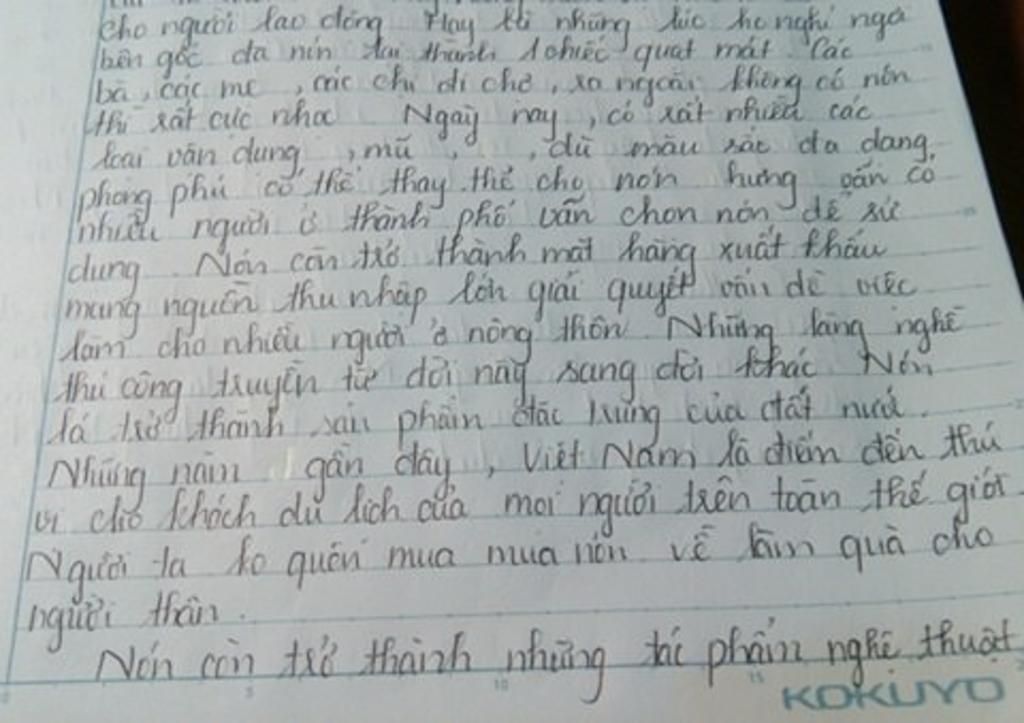 cho người lao động Hay là những lúc họ nghỉ ngơi
bên gốc đa nón lại thành 1 chiếc quạt mát Các
bà, các mẹ, các chị đi chợ, ra ngoài không có nón
thì rất cực nhọc Ngày nay, có rất nhiều các
loại vận dụng, mũ, , dù màu sắc đa dạng,
phong phú có thể thay thế cho nón hưng vẫn có
nhiều người ở thành phố vẫn chọn nón để sử
dụng. Nón còn trở thành mặt hàng xuất khẩu
mang nguồn thu nhập lớn giải quyết vấn đề việc
làm cho nhiều người ở nông thôn. Những làng nghề
thủ công truyền từ đời này sang đời khác Nón
lá trở thành sản phẩm đặc trưng của đất nước.
Những năm gần đây, Việt Nam là điểm đến thú
vị cho khách du lịch của mọi người trên toàn thế giới.
Người ta ko quên mua mua nón về làm quà cho
người thân.
Nón còn trở thành những tác phẩm nghệ thuật
KOKUYO